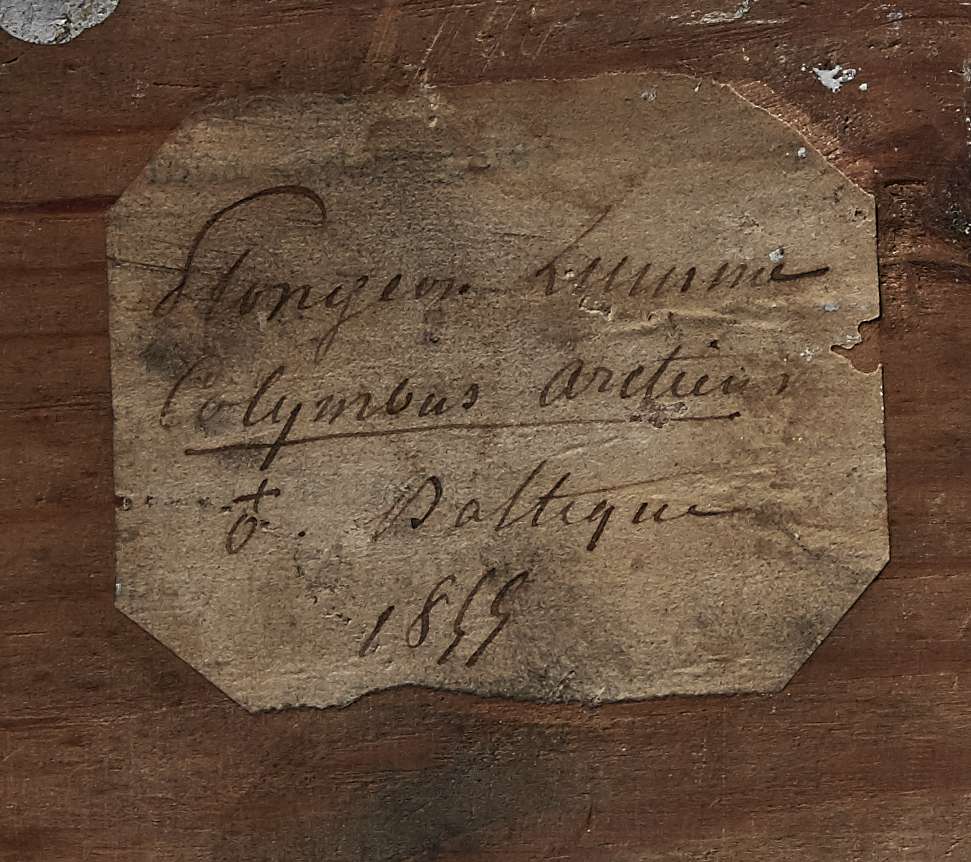 Plongeon Lumme
Colymbus arcticus
♂. Baltique
1855